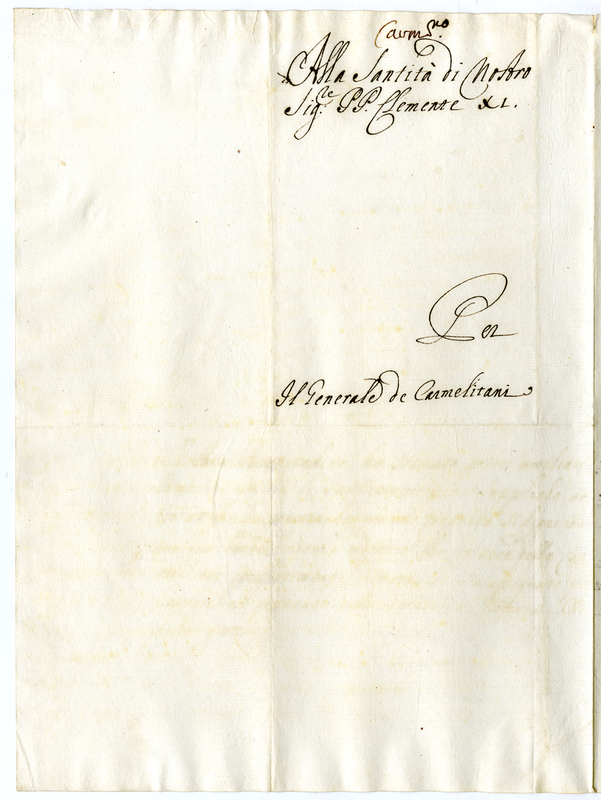 Alla Santità di Nostro
Sig.re PP. Clemente XI.
Per
Il Generale de Carmelitani